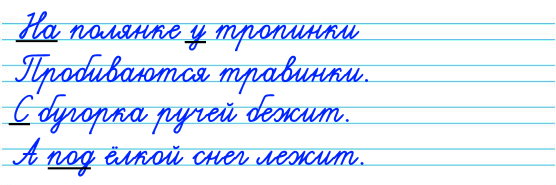 На полянке у тропинки
Пробиваются травинки.
С бугорка ручей бежит.
А под ёлкой снег лежит.